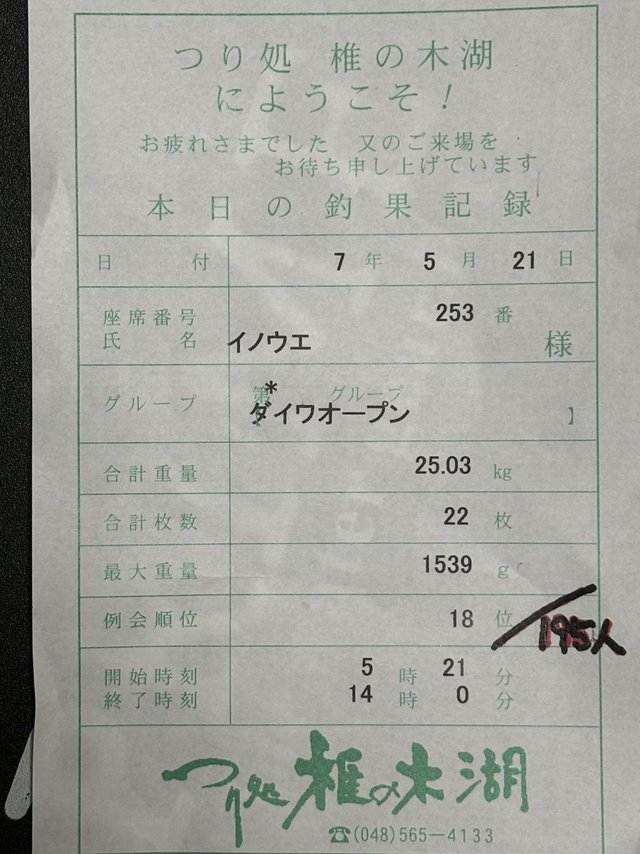 つり処 椎の木湖
にようこそ！
お疲れさまでした 又のご来場を
お待ち申し上げています
本日の釣果記録
日付 7年 5月 21日
座席番号 253 番
氏名 イノウエ 様
グループ 第* グループ
ダイワオープン 】
合計重量 25.03 kg
合計枚数 22 枚
最大重量 1539 g
例会順位 18 位 /195人
開始時刻 5時 21分
終了時刻 14時 0分
つり処 椎の木湖
☎(048)565-4133